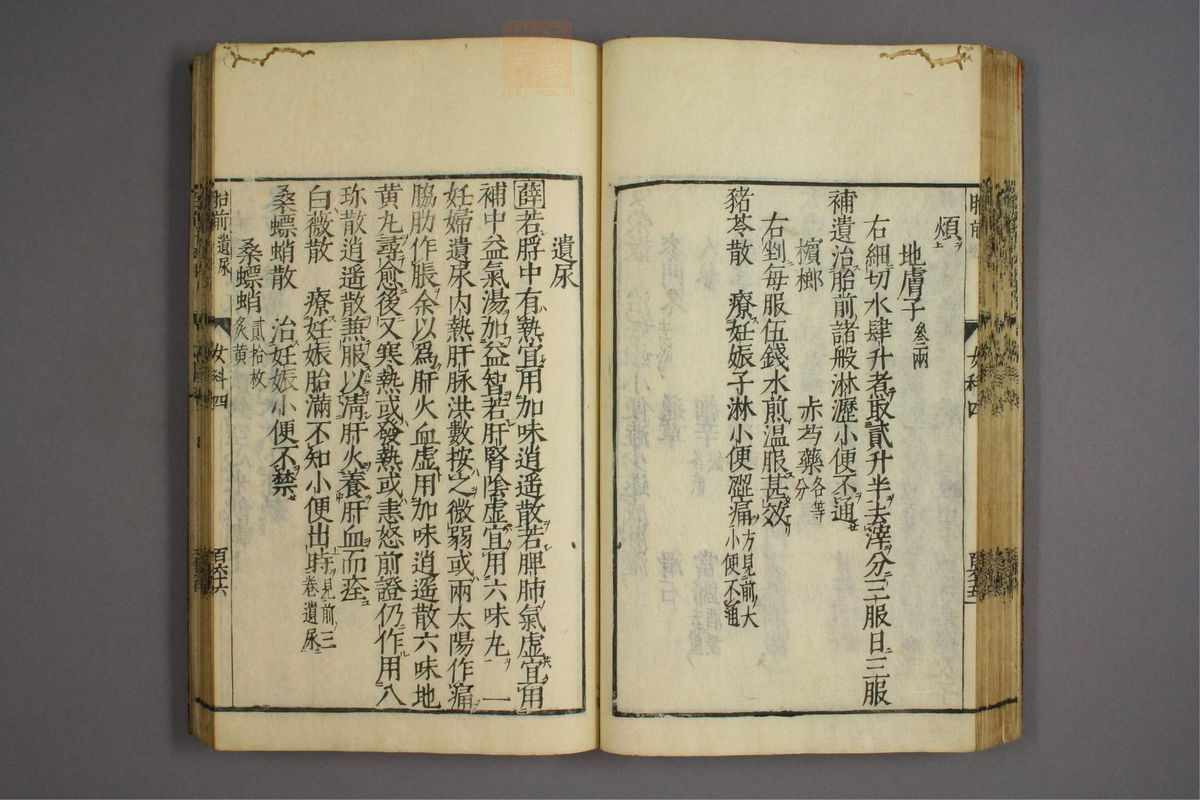 煩
地膚子 叄兩
右細切水肆升煮取貳升半去滓分三服日三服
補遺治胎前諸般淋瀝小便不通
檳榔 赤芍藥 各等分
右剉每服伍錢水煎溫服甚效
豬苓散 療妊娠子淋小便澀痛 方見前大小便不通
遺尿
薛若脬中有熱宜用加味逍遙散若脾肺氣虛宜用
補中益氣湯加益智若肝腎陰虛宜用六味丸 一
妊婦遺尿內熱肝脉洪數按之微弱或兩太陽作痛
脇肋作脹余以爲肝火血虛用加味逍遙散六味地
黃丸尋愈後又寒熱或發熱或恚怒前證仍作用八
珍散逍遙散兼服以淸肝火養肝血而痊
白薇散 療妊娠胎滿不知小便出時 方見前三卷遺尿
桑螵蛸散 治妊娠小便不禁
桑螵蛸 貳拾枚炙黃
胎前遺尿 女科四 百六十六
女科四